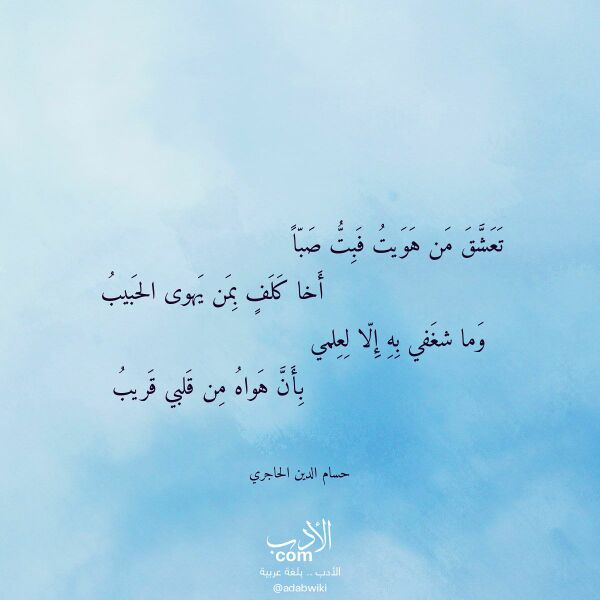 تَعَشَّقَ مَن هَوَيتُ فَبِتُّ صَبّاً
أَخا كَلَفٍ بِمَن يَهوى الحَبيبُ
وَما شغَفي بِهِ إِلّا لِعِلمي
بِأَنَّ هَواهُ مِن قَلبي قَريبُ
حسام الدين الحاجري
الأدب
com
الأدب .. بلغة عربية
@adabwiki